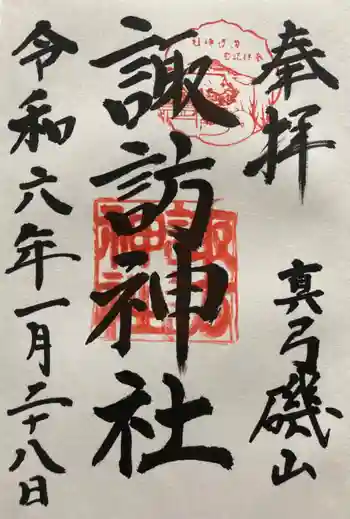 奉拝
真弓磯山
諏訪神社
令和六年一月二十八日
諏訪神社